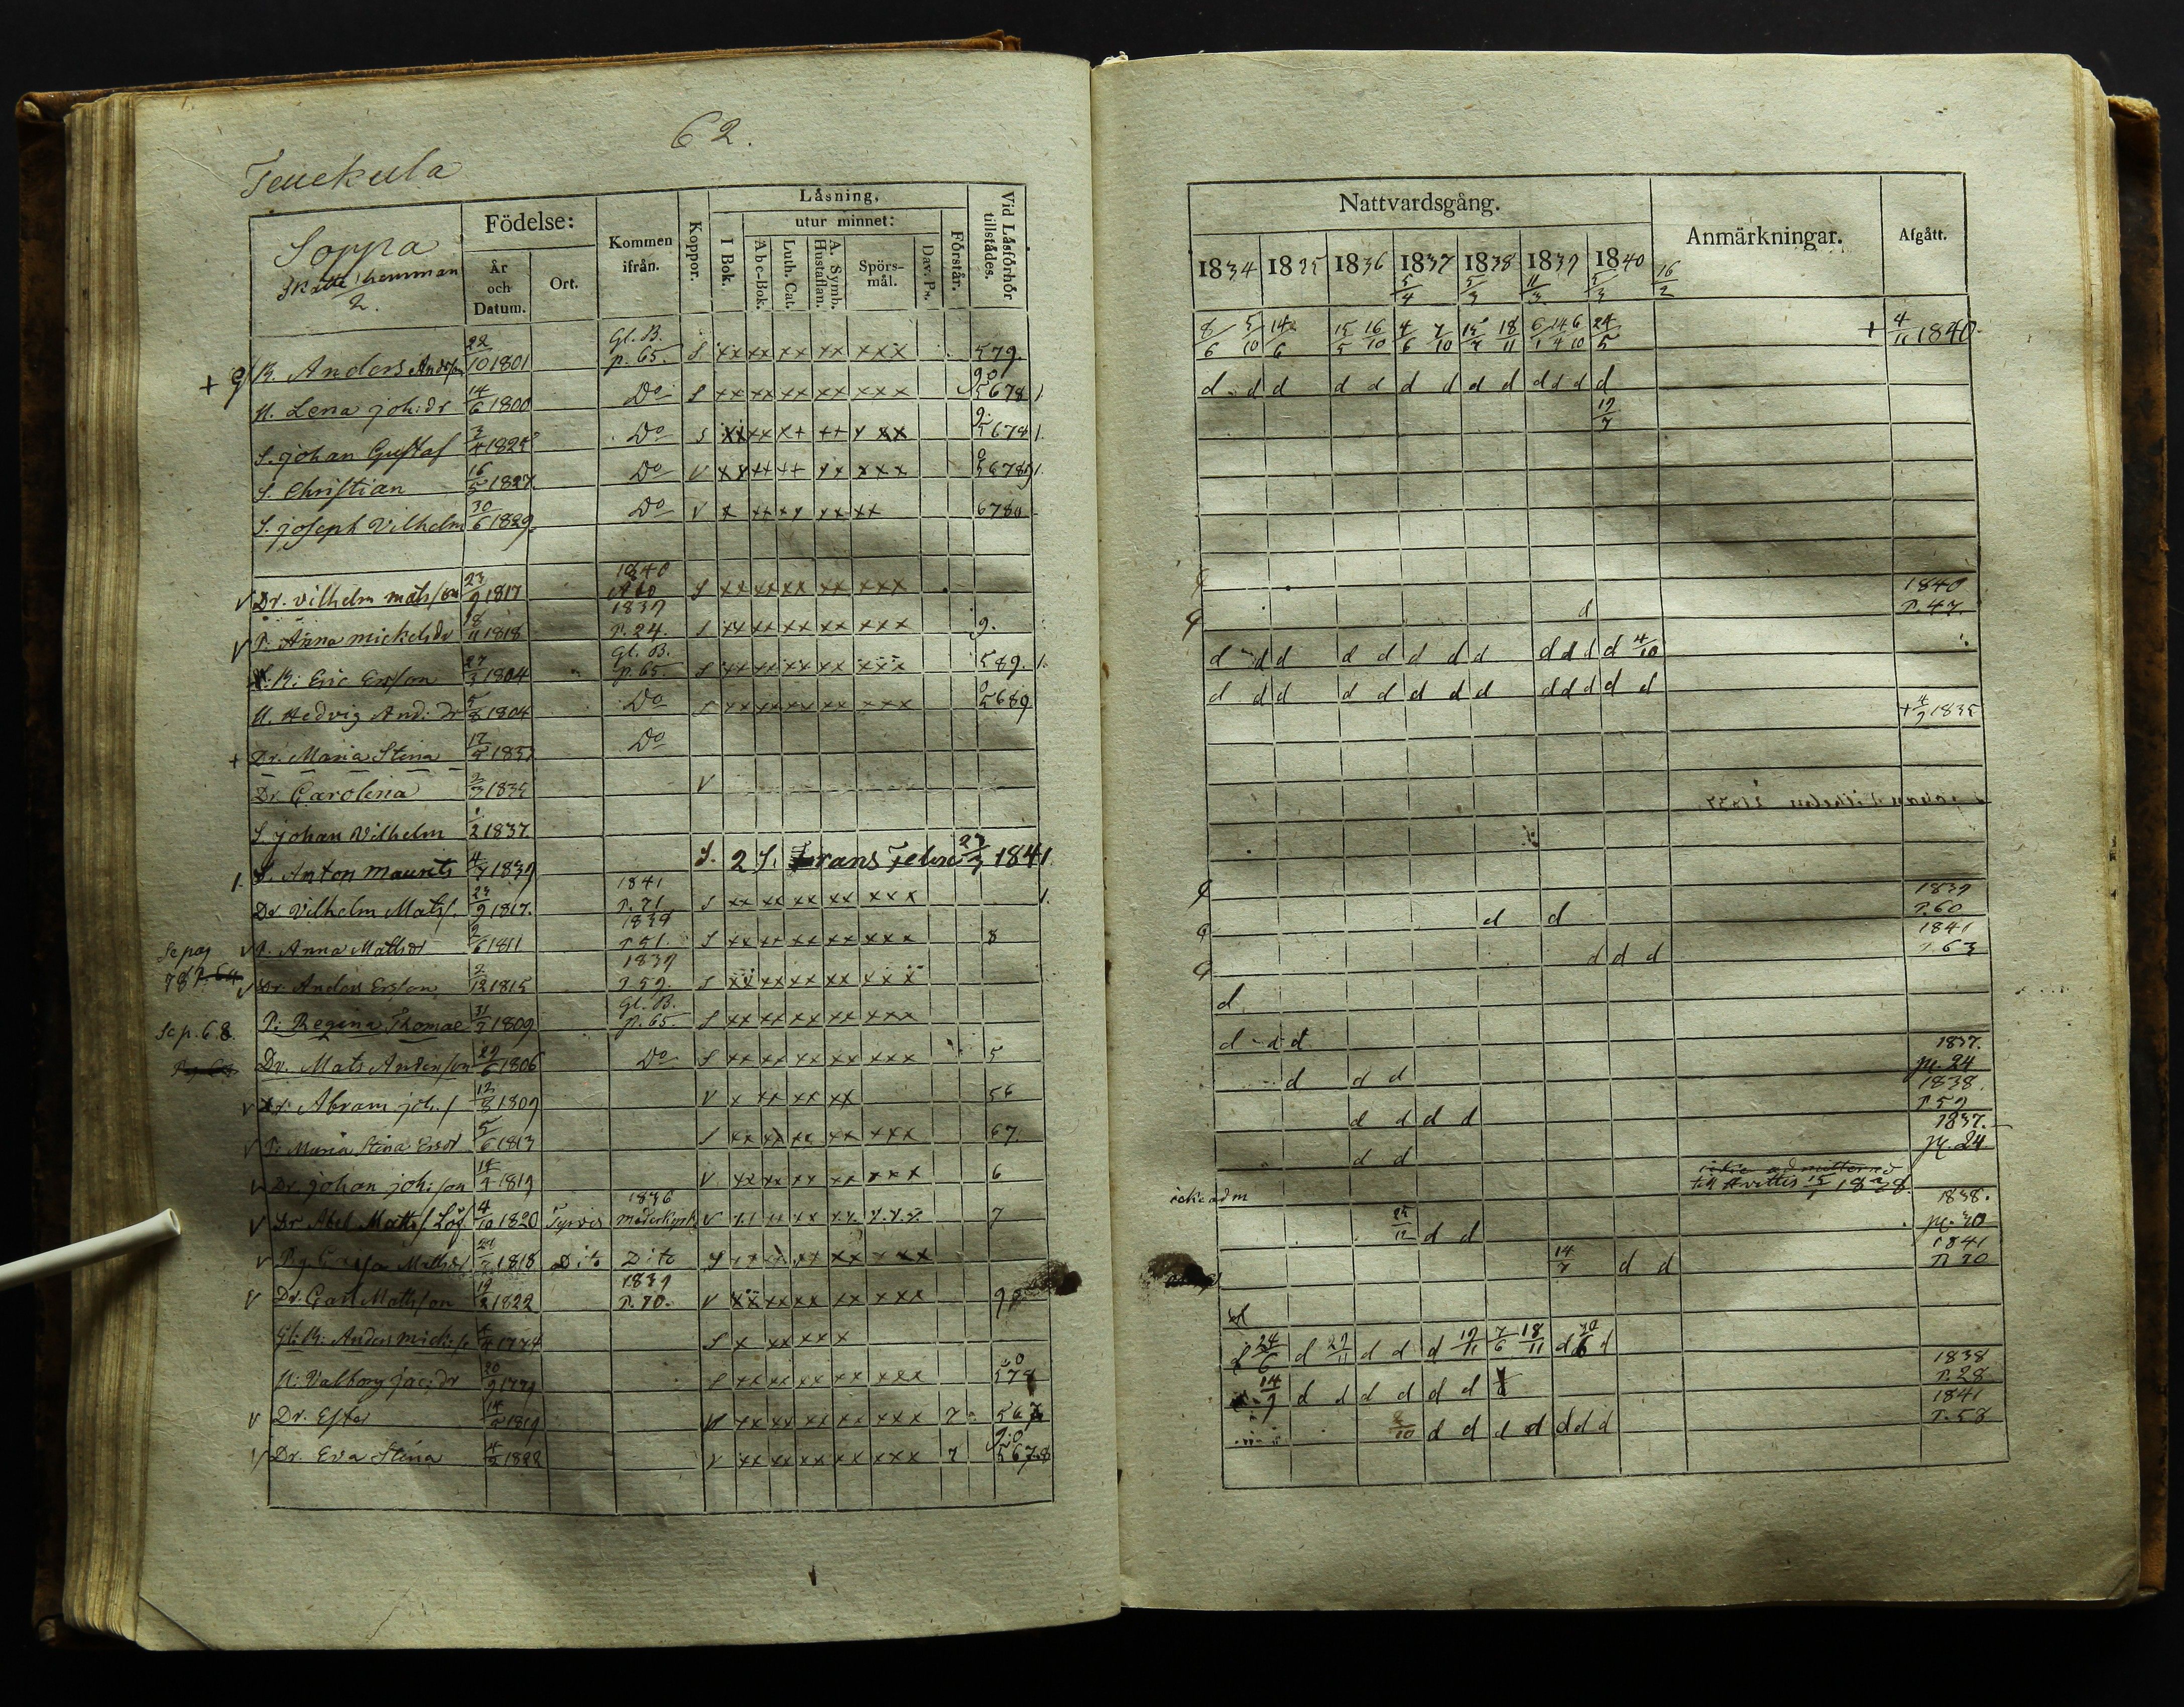 62.
Teuckula
Soppa
Skatte hemman
2.
Födelse:
År och Datum.
Ort.
Kommen ifrån.
Koppor.
Läsning,
I Bok.
utur minnet:
Abc-Bok.
Luth. Cat.
A. Symb. Hustaflan.
Spörs-mål.
Dav. Ps.
Förstår.
Vid Läsförhör tillstådes.
+ B. Anders Anderss. 22/10 1801 Gl. B. p. 65. S xx xx xx xx xxx 579.
H. Lena joh:dr 14/6 1800 Do S xx xx xx xx xxx 90 5678 1
S. johan Gustaf 3/4 1825 Do S xx xx x+ ++ x xx 9. 5678 1.
S. Christian 16/5 1827. Do V xx ++ ++ xx xxx 56789 1.
S. joseph Vilhelm 30/6 1829. Do V x xx xx xx xx 6780
V Dr. Vilhelm mats/son 23/9 1817 1840 Åbo S xx xx xx xx xxx
V P. Anna mickelsdr 18/11 1818 1839 P. 24. S xx xx xx xx xxx 9.
B: Eric Ersson 27/3 1804 Gl. B. p. 65. S xx xx xx xx xxx 589. 1.
H. Hedvig And: dr 5/8 1804 Do S xx xx xx xx xxx 0 5689
+ Dr. Maria Stina 17/5 1832 Do
Dr. Carolina 2/3 1835 V
S. johan Vilhelm 1/2 1837.
1. S. Anton Maurits 4/7 1839 S. 2 S. Frans Felix 23/3 1841.
Dr Vilhelm Mats/. 23/9 1817. 1841 P. 71 S xx xx xx xx xxx 1.
Se pag 78 P. 64 V P. Anna Mathsdr 2/6 1811 1839 P 51. S xx xx xx xx xxx 8
V Dr. Anders Ersson 2/12 1815 1839 P 59. S xx xx xx xx xxx
Se p. 68. P: Regina Thomae 31/7 1809 Gl. B. p. 65. S xx xx xx xx xxx
Dr. Mats Anderson 29/6 1806 Do S xx xx xx xx xxx 5
V Dr: Abram joh:/ 12/8 1809 V x xx xx xx 56
V P: Maria Stina Ersdr 5/6 1813 S xx xx xx xx xxx 67.
V Dr. johan joh:son 14/4 1819 V xx xx xx xx xxx 6
V Dr Abel Matts/ Löf 4/10 1820 Tyrvis 1836 moderkyrk. V 7
V Pig. Caisa Mathsdr 1818 Dito Dito S xx xx xx xx xxx
V Dr. Carl Mathson 19/2 1822 1839 P. 70. V xx xx xx xx xxx 9
Gl: B: Anders mick:/ 4/4 1774 S x xx xx x
H: Valborg jac:dr 20/9 1779 S xx xx xx xx xxx 578
V Dr. Ester 14/5 1819 V xx xx xx xx xxx 7 567
V Dr. Eva Stina 4/2 1822 V xx xx xx xx xxx 7 9.0 5678
Nattvardsgång.
1834 1835 1836 1837 1838 1839 1840
5/4 5/3 11/3 5/3 16/2
Anmärkningar.
Afgått.
8/6 5/10 14/6 15/5 16/10 4/6 7/10 15/7 18/11 6/1 14/4 6/10 24/5 + 4/11 1840
d d d d d d d d d d d d d
19/7
1840
d P. 47.
d d d d d d d d d d d d 4/10
d d d d d d d d d d d d d
+ 4/9 1835
1839
d d P. 60
1841
d d d P. 63
d
d d d
1837.
d d d pg. 24
1838.
d d d d P 59
1837.
d d pg. 24
icke adm icke admitterad till Avittis 15/1 1838. 1838.
25/12 d d pg. 30
1841
14/7 d d P. 70
24/6 d 29/11 d d d 19/11 7/6 18/11 d 6 d
14/9 d d d d d d 1838 P. 28
8/10 d d d d d d d 1841 P. 58